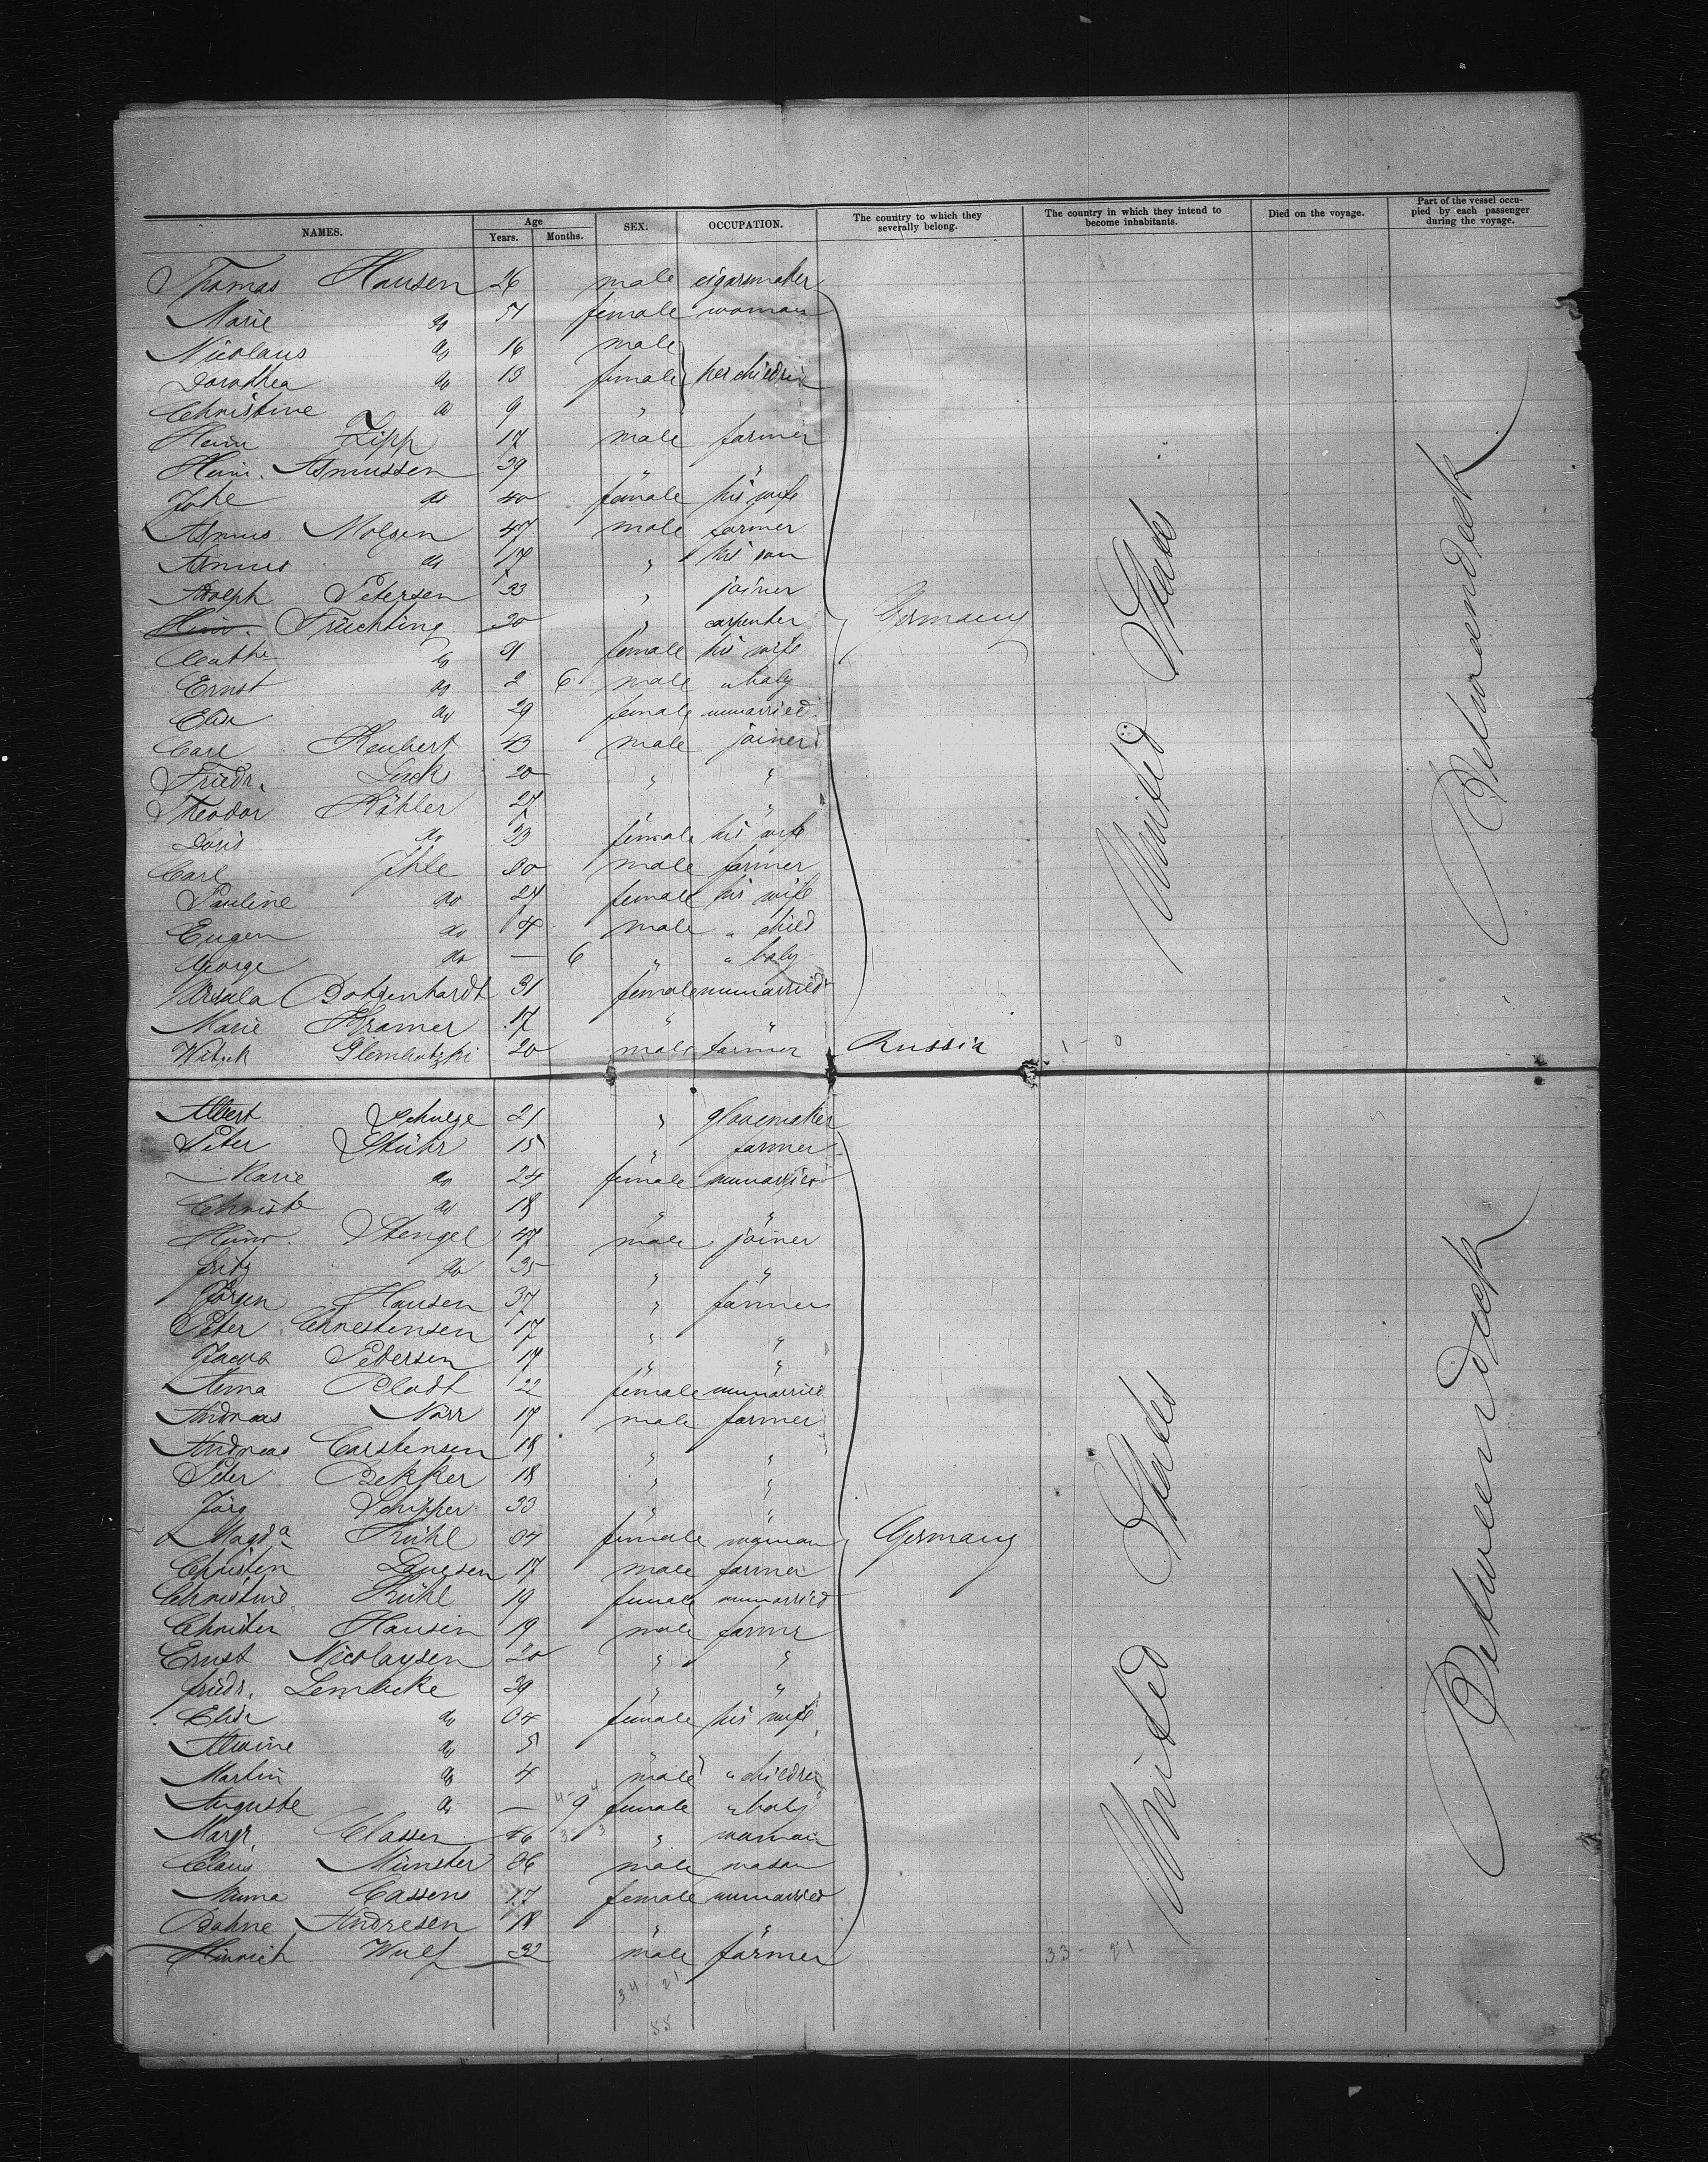 NAMES. Age Years. Months. SEX. OCCUPATION. The country to which they severally belong. The country in which they intend to become inhabitants. Died on the voyage. Part of the vessel occupied by each passenger during the voyage.
Thomas Hansen 26 male cigarsmaker
Marie do 51 female woman
Nicolaus do 16 male
Dorothea do 13 female her children
Christine do 9 "
Heinr Zipp 17 male farmer
Heinr. Asmussen 39 " "
do 40 female his wife
Asmus Molzen 47 male farmer
Asmus do 17 " his son
Adolph Petersen 33 " joiner
Heinr. Früchting 30 " carpenter Germany
Cathe do 31 female his wife
Ernst do 2 6 male " baby
Elise do 29 female unmarried
Carl Keubert 43 male joiner
Friedr. Lück 20 " "
Theodor Köhler 27 " "
Doris do 23 female his wife
Carl Ihle 30 male farmer
Pauline do 27 female his wife
Eugen do 4 male " child
George do — 6 " " baby
Ursula Botzenhardt 31 female unmarried
Marie Kramer 17 " "
20 male farmer Russia 1 - 0
United States
Betweendeck
Albert Schulze 21 " glovemaker
Peter Stühr 15 " farmer
Marie do 24 female unmarried
Christe do 18 " "
Heinr. Stengel 47 male joiner
Fritz do 35 " "
Jörgen Hansen 37 " farmer
Peter Christensen 17 " "
Jacob Petersen 17 " "
Anna Bladt 22 female unmarried
Andreas Nörr 17 male farmer
Andreas Carstensen 18 " "
Peter Bekker 18 " "
Jürg Schipper 33 " "
Magda Kühl 34 female woman Germany
Christen Lauesen 17 male farmer
Christine Kühl 19 female unmarried
Christen Hansen 19 male farmer
Ernst Nicolaysen 20 " "
Friedr. Lembcke 39 " "
Elise do 34 female his wife
Alwine do 5 "
Martin do 4 male " children
Auguste do — 9 female " baby
Margr. Classen 46 " woman
Claus Münster 36 male mason
Minna Cassens 17 female unmarried
Bahne Andresen 18 " "
Hinrich Wulf 32 male farmer 33 - 21
34 - 21
55
United States
Betweendeck